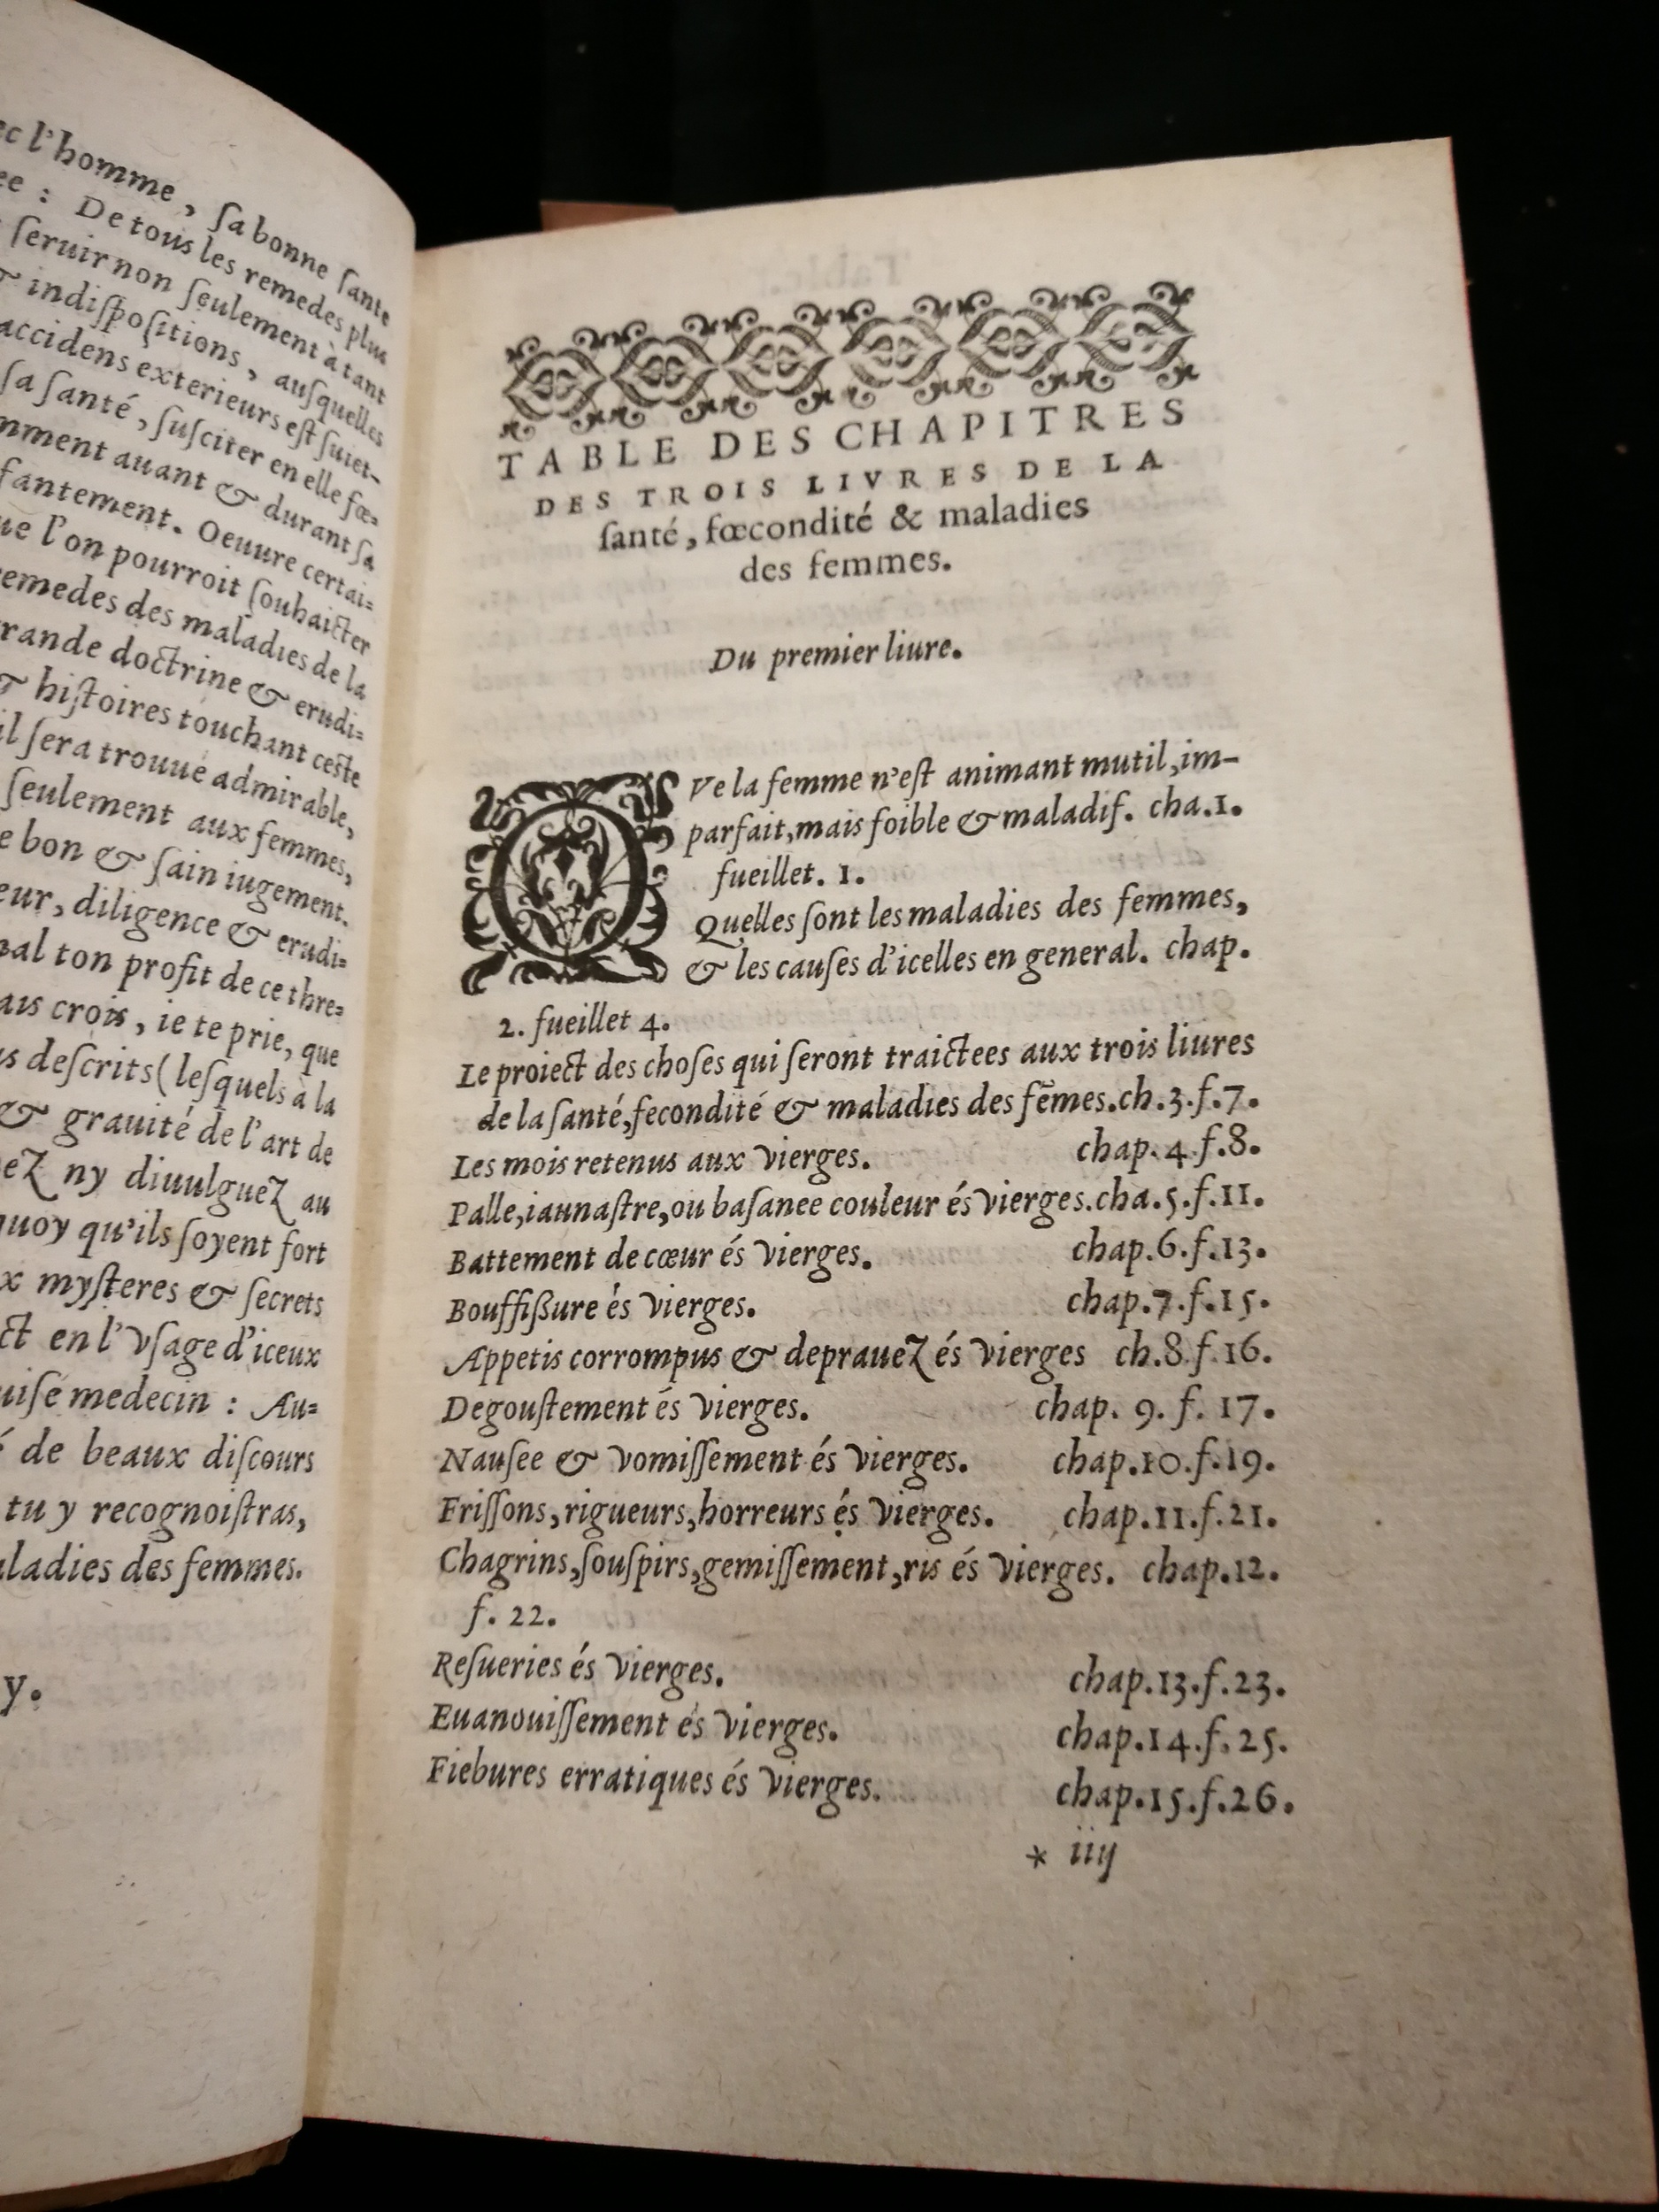 ec l'homme, sa bonne sante
ee : De tous les remedes plus
seruir non seulement à tant
& indispositions, ausquelles
accidens exterieurs est suiet-
sa santé, susciter en elle fœ-
mment auant & durant sa
fantement. Oeuure certai-
ue l'on pourroit souhaicter
remedes des maladies de la
rande doctrine & erudi-
& histoires touchant ceste
il sera trouué admirable,
seulement aux femmes,
e bon & sain iugement.
eur, diligence & erudi-
nal ton profit de ce thre-
ais crois, ie te prie, que
us descrits (lesquels à la
& grauité de l'art de
nez ny diuulguez au
quoy qu'ils soyent fort
x mysteres & secrets
ct en l'vsage d'iceux
uisé medecin : Au-
é de beaux discours
tu y recognoistras,
aladies des femmes.
y.
TABLE DES CHAPITRES
DES TROIS LIVRES DE LA
santé, fœcondité & maladies
des femmes.
Du premier liure.
QVe la femme n'est animant mutil, im-
parfait, mais foible & maladif. cha.1.
fueillet. 1.
Quelles sont les maladies des femmes,
& les causes d'icelles en general. chap.
2. fueillet 4.
Le proiect des choses qui seront traictees aux trois liures
de la santé, fecondité & maladies des fẽmes. ch.3.f.7.
Les mois retenus aux vierges. chap.4.f.8.
Palle, iaunastre, ou basanee couleur és vierges. cha.5.f.11.
Battement de cœur és vierges. chap.6.f.13.
Bouffißure és vierges. chap.7.f.15.
Appetis corrompus & deprauez és vierges ch.8.f.16.
Degoustement és vierges. chap. 9. f. 17.
Nausee & vomissement és vierges. chap.10.f.19.
Frissons, rigueurs, horreurs és vierges. chap.11.f.21.
Chagrins, souspirs, gemissement, ris és vierges. chap.12.
f. 22.
Resueries és vierges. chap.13.f.23.
Euanouissement és vierges. chap.14.f.25.
Fiebures erratiques és vierges. chap.15.f.26.
* iiij